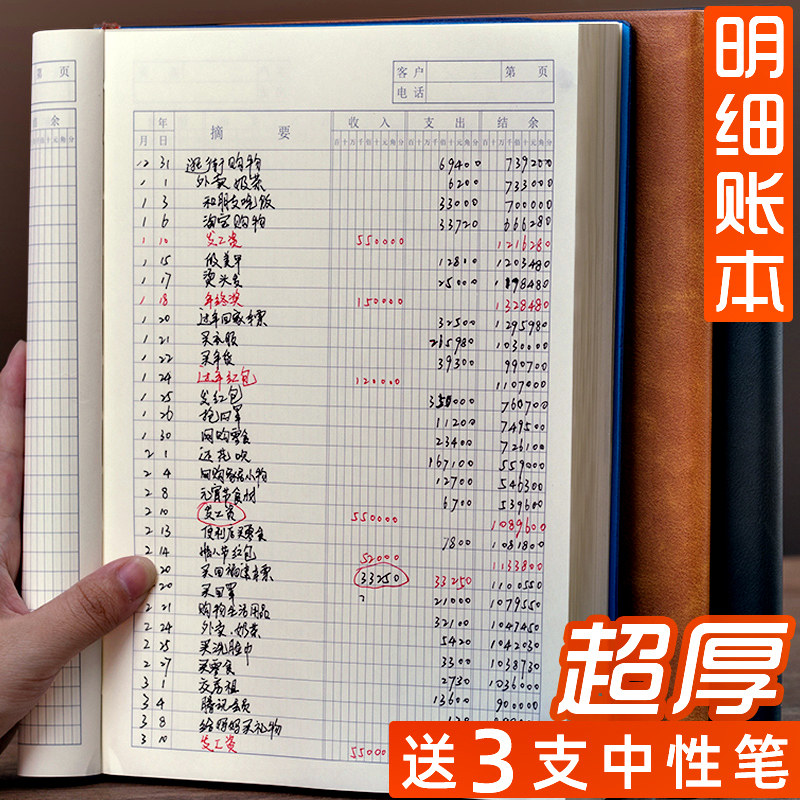 明细账本
第 页
余
客户 第 页
电话
年 摘 要 收 入 支 出 结 余
月 日 百十万千佰十元角分 百十万千佰十元角分 百十万千佰十元角分
12 31 逛街购物 69400 739200
1 1 外卖.奶茶 6200 733000
1 3 和朋友吃饭 33000 700000
1 6 淘宝购物 33720 666280
1 10 发工资 550000 1216280
1 15 做美甲 12810 1203480
1 17 烫头发 25000 1198480
1 18 年终奖 150000 1328480
1 20 过年回家车票 32500 1295980
1 21 买衣服 265980 1030000
1 22 买年货 39300 990700
1 24 过年红包 120000 1107000
1 25 发红包 350000 760700
1 26 抢口罩 11200 749500
1 30 网购零食 23400 726100
2 1 还花呗 167100 559000
2 4 网购家居小物 12700 546300
2 8 元宵节食材 6700 539600
2 10 发工资 550000 1089600
2 13 便利店买零食 7800 1081800
2 14 情人节红包 52000 1133800
20 买回福建车票 33250 33250 1100550
20 买口罩 21000 1079550
2 21 购物生活用品 32100 1047450
2 24 外卖.奶茶 5420 1042030
2 25 买洗脸巾 3300 1038730
2 27 买零食 2730 1036000
3 1 交房租 13600 900000
3 4 腾讯会员
3 8 给妈妈买礼物
3 10 发工资 55000
超厚
送3支中性笔